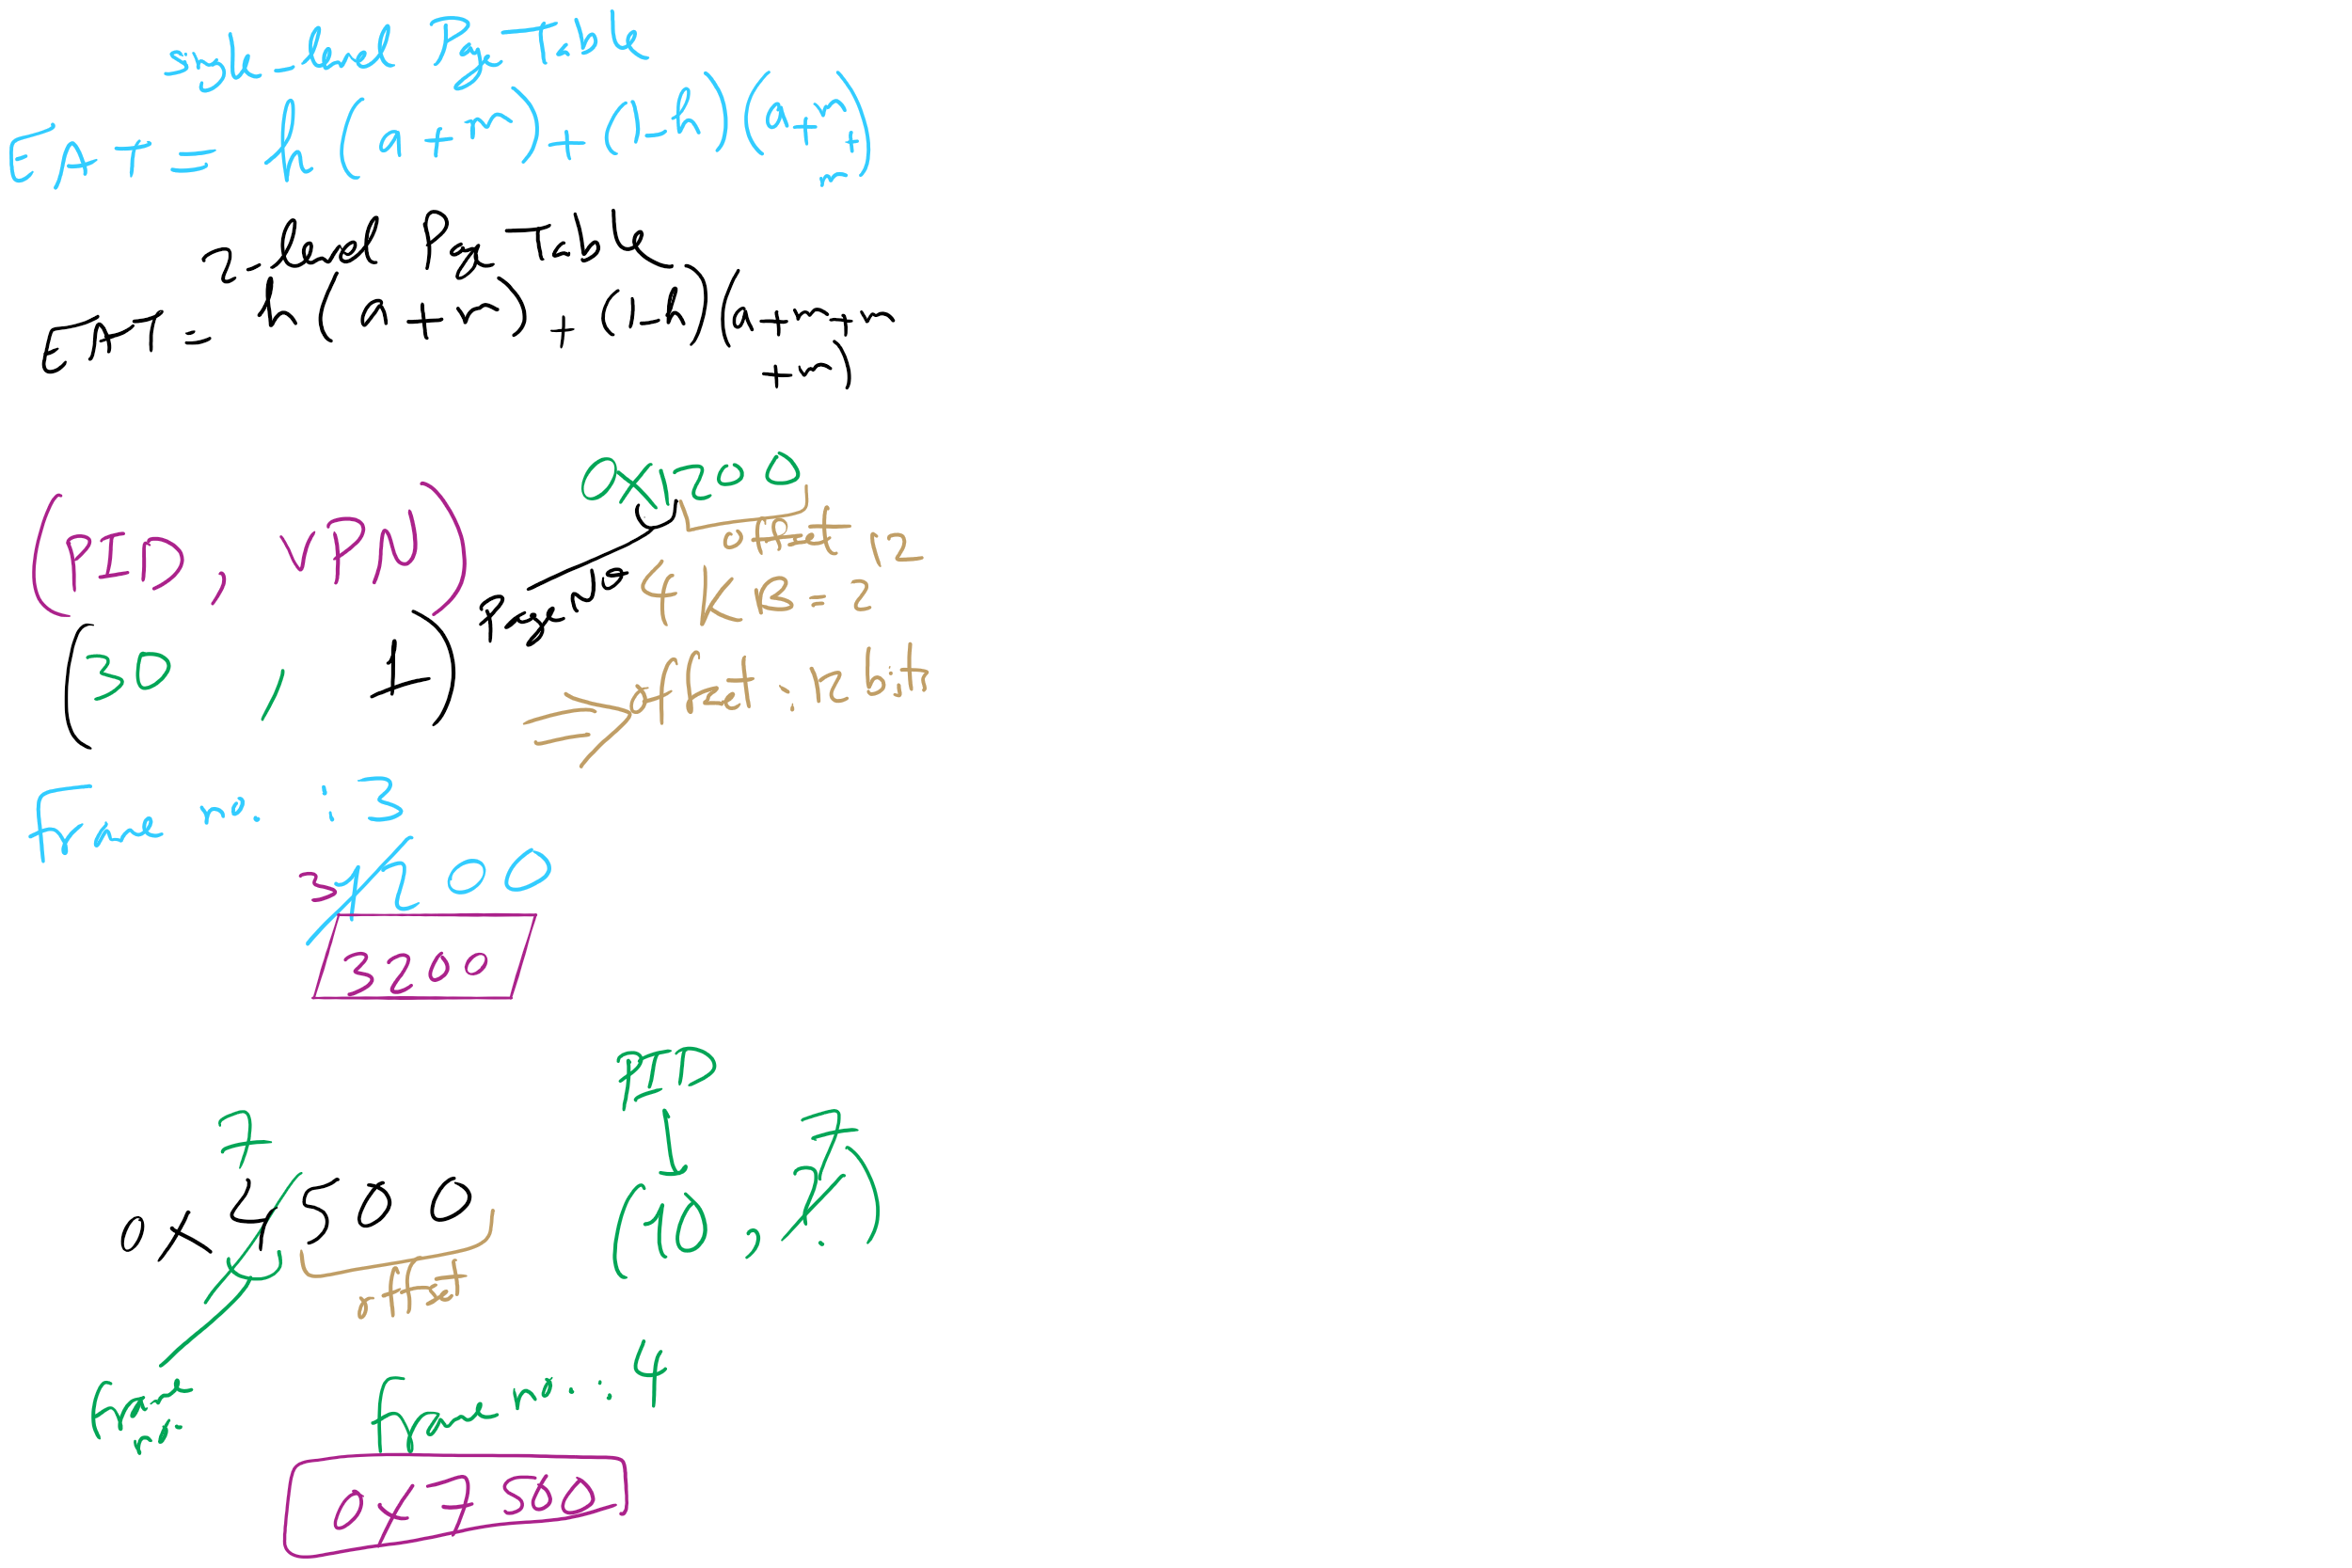 single-level Page Table
EAT = h(a+m)+(1-h)(a+m+m)
2-level Page Table
EAT = h(a+m)+(1-h)(a+m+m
+m)
0x1200
(PID, VPN)
offset
Page no
4KB = 2^12
(30, 1)
⇒ offset : 12 bit
Frame no. : 3
3 1200
3200
PID
7 7
0x4500
(10, ?)
offset
Frame no.
Frame no. : 4
0x7500